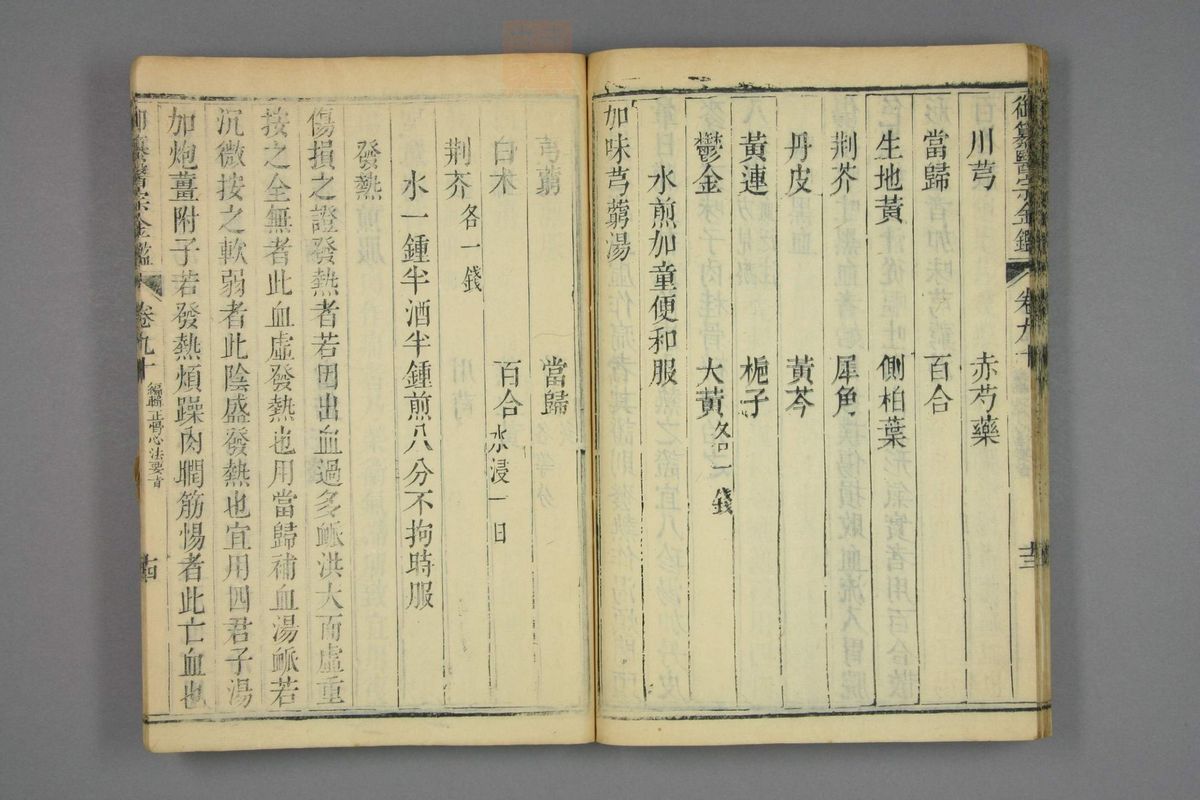 御纂醫宗金鑑 卷九十
川芎 赤芍藥
當歸 百合
生地黃 側柏葉
荆芥 犀角
丹皮 黃芩
黃連 梔子
鬱金 大黃各一錢
水煎加童便和服
加味芎藭湯
芎藭 當歸
白朮 百合水浸一日
荆芥各一錢
水一鍾半酒半鍾煎八分不拘時服
發熱
傷損之證發熱者若因出血過多脈洪大而虛重
按之全無者此血虛發熱也用當歸補血湯脈若
沉微按之軟弱者此陰盛發熱也宜用四君子湯
加炮薑附子若發熱煩躁肉瞤筋惕者此亡血也
御纂醫宗金鑑 卷九十 編輯正骨心法要旨 十四